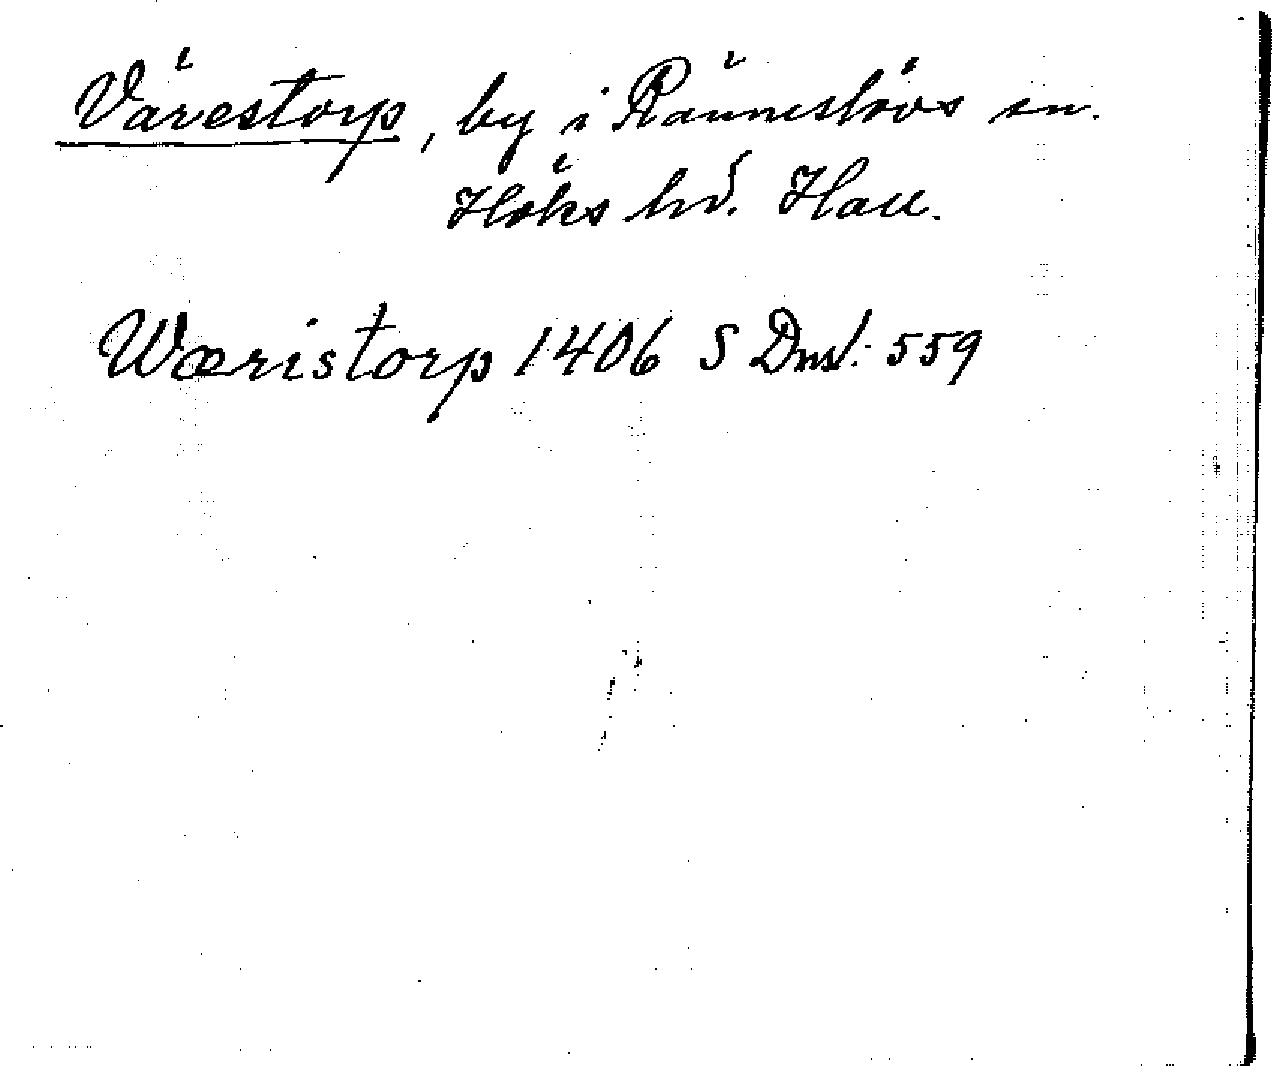 Värestorp, by i Ränneslövs sn.
Höks hd. Hall.
Wæristorp 1406 S Dns!: 559